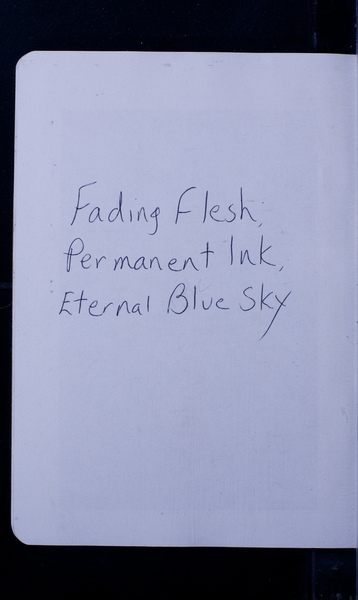 Fading Flesh,
Permanent Ink,
Eternal Blue Sky